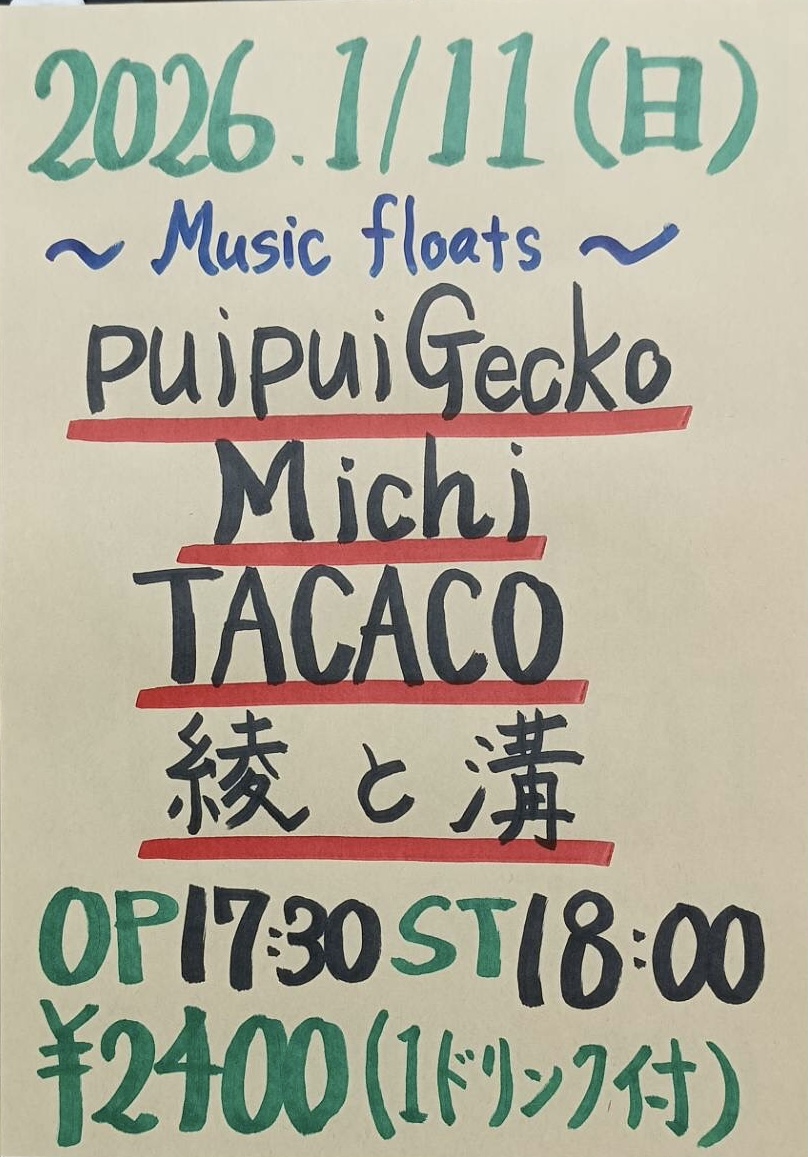 2026.1/11(日)
～ Music floats ～
puipuiGecko
Michi
TACACO
綾と溝
OP17:30 ST18:00
¥2400(1ドリンク付)